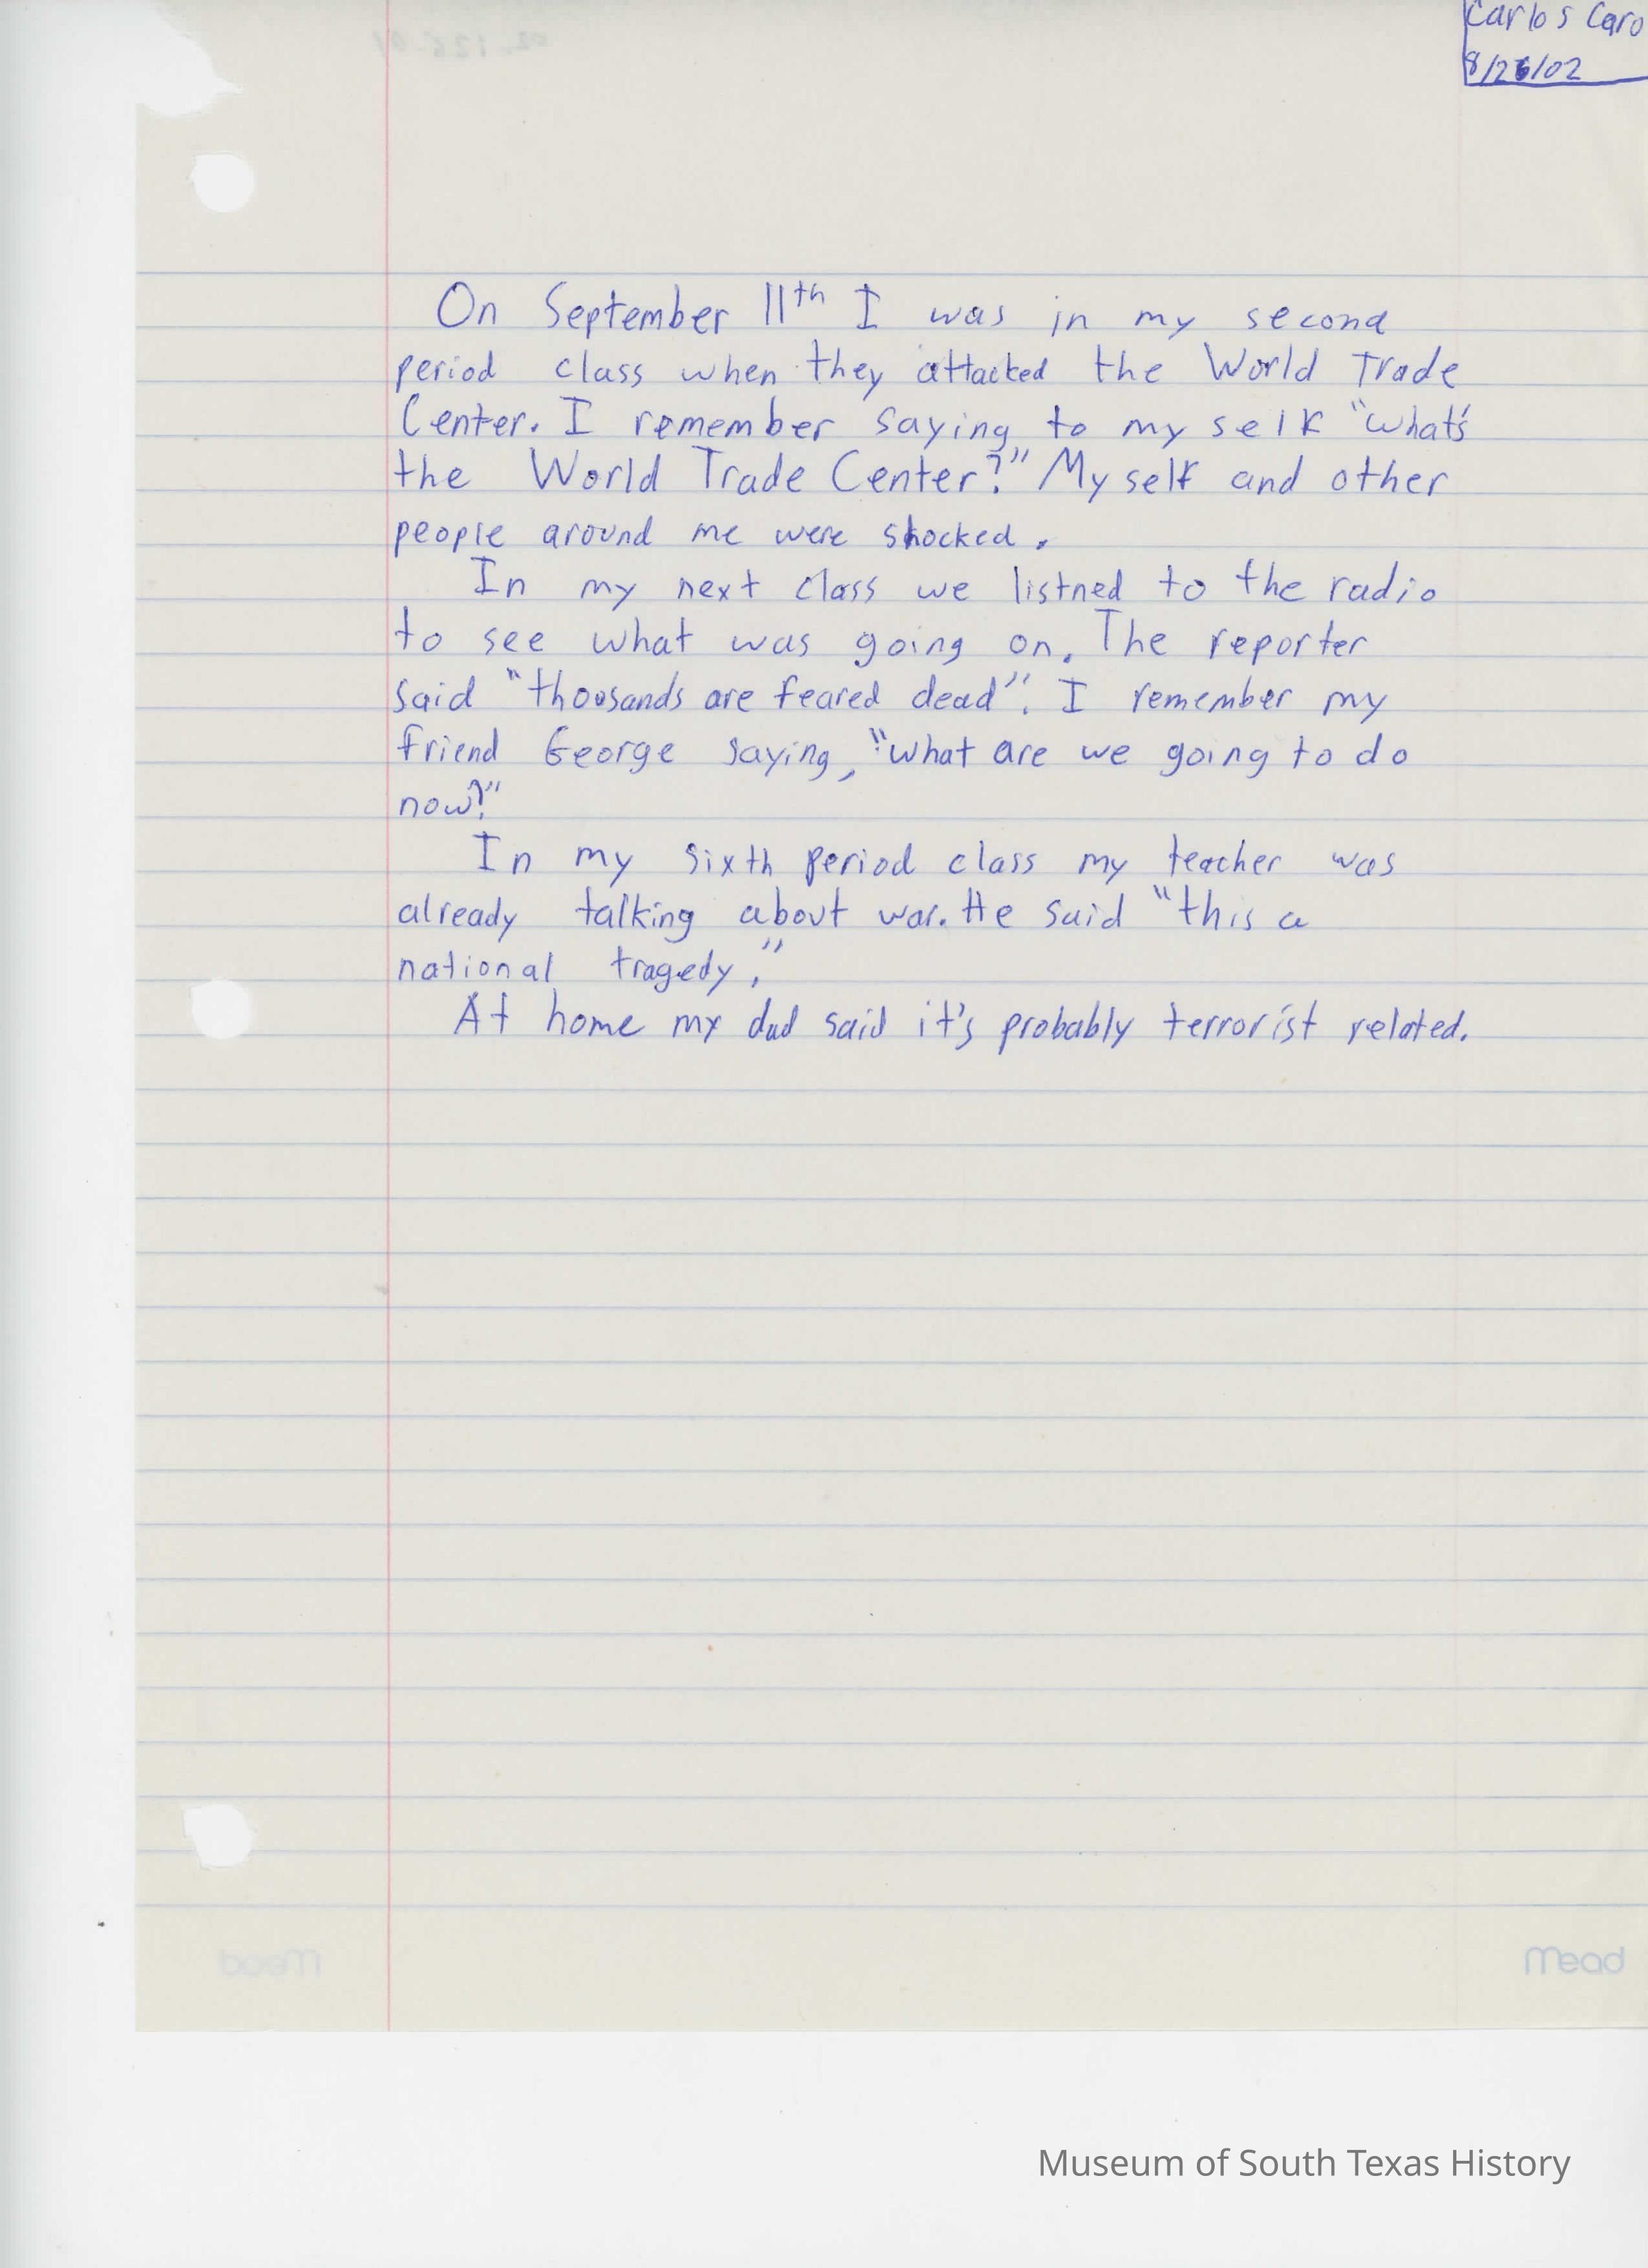 Carlos Caro
8/26/02
On September 11th I was in my second
period class when they attacked the World Trade
Center. I remember saying to my self "what's
the World Trade Center?" My self and other
people around me were shocked.
In my next class we listned to the radio
to see what was going on. The reporter
said "thousands are feared dead". I remember my
friend George saying, "what are we going to do
now?"
In my sixth period class my teacher was
already talking about war. He said "this a
national tragedy."
At home my dad said it's probably terrorist related.
Mead
Museum of South Texas History